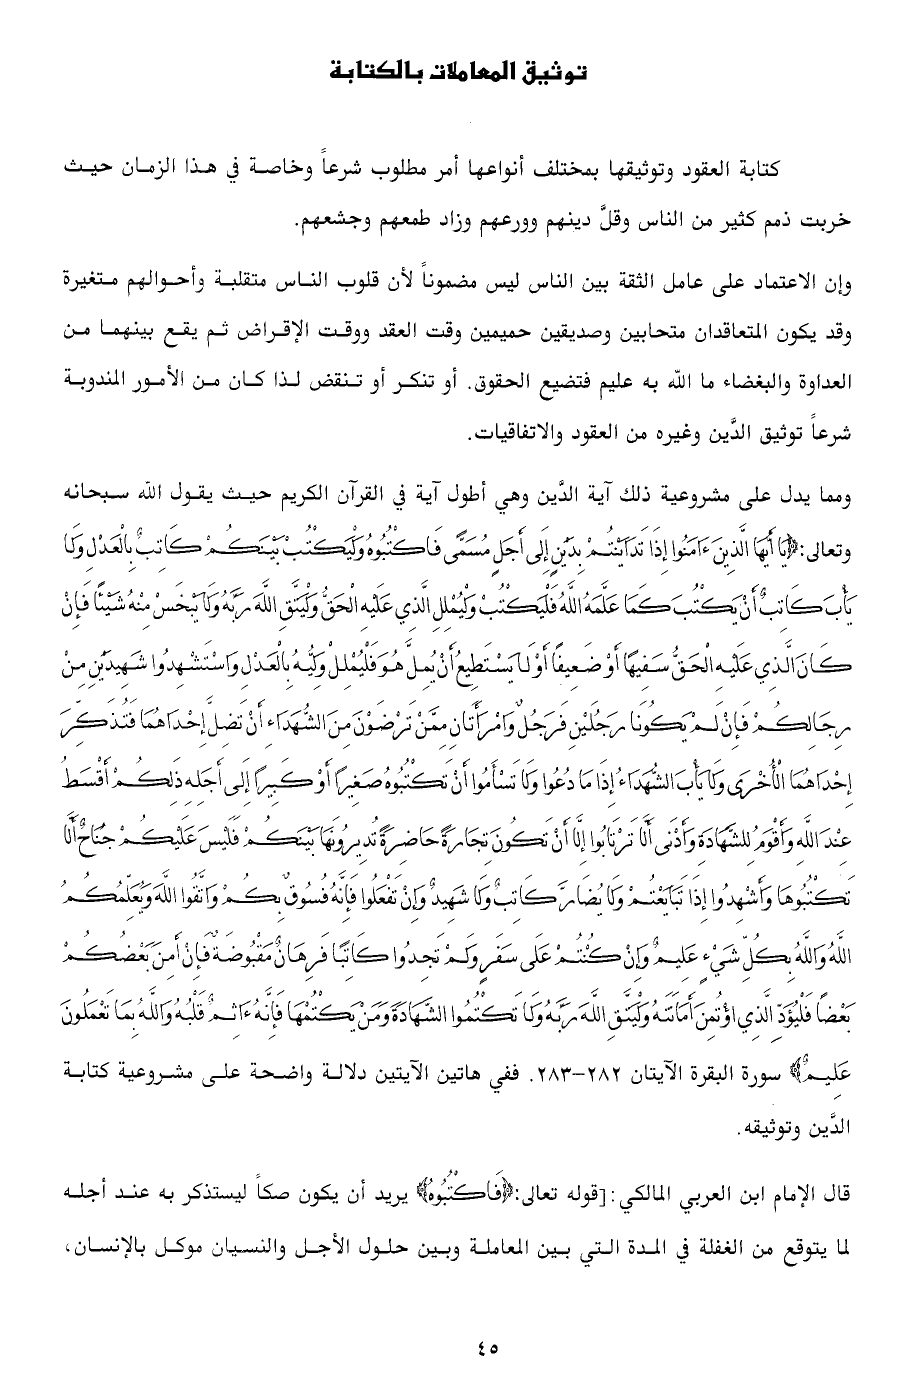 توثيق المعاملات بالكتابة
كتابة العقود وتوثيقها بمختلف أنواعها أمر مطلوب شرعاً وخاصة في هذا الزمان حيث
خربت ذمم كثير من الناس وقلَّ دينهم وورعهم وزاد طمعهم وجشعهم.
وإن الاعتماد على عامل الثقة بين الناس ليس مضموناً لأن قلوب الناس متقلبة وأحوالهم متغيرة
وقد يكون المتعاقدان متحابين وصديقين حميمين وقت العقد ووقت الإقراض ثم يقع بينهما من
العداوة والبغضاء ما الله به عليم فتضيع الحقوق. أو تنكر أو تنقض لذا كان من الأمور المندوبة
شرعاً توثيق الدَّين وغيره من العقود والاتفاقيات.
ومما يدل على مشروعية ذلك آية الدَّين وهي أطول آية في القرآن الكريم حيث يقول الله سبحانه
وتعالى:﴿يَا أَيُّهَا الَّذِينَ ءَامَنُوا إِذَا تَدَايَنْتُمْ بِدَيْنٍ إِلَى أَجَلٍ مُسَمًّى فَاكْتُبُوهُ وَلْيَكْتُبْ بَيْنَكُمْ كَاتِبٌ بِالْعَدْلِ وَلَا
يَأْبَ كَاتِبٌ أَنْ يَكْتُبَ كَمَا عَلَّمَهُ اللَّهُ فَلْيَكْتُبْ وَلْيُمْلِلِ الَّذِي عَلَيْهِ الْحَقُّ وَلْيَتَّقِ اللَّهَ رَبَّهُ وَلَا يَبْخَسْ مِنْهُ شَيْئًا فَإِنْ
كَانَ الَّذِي عَلَيْهِ الْحَقُّ سَفِيهًا أَوْ ضَعِيفًا أَوْ لَا يَسْتَطِيعُ أَنْ يُمِلَّ هُوَ فَلْيُمْلِلْ وَلِيُّهُ بِالْعَدْلِ وَاسْتَشْهِدُوا شَهِيدَيْنِ مِنْ
رِجَالِكُمْ فَإِنْ لَمْ يَكُونَا رَجُلَيْنِ فَرَجُلٌ وَامْرَأَتَانِ مِمَّنْ تَرْضَوْنَ مِنَ الشُّهَدَاءِ أَنْ تَضِلَّ إِحْدَاهُمَا فَتُذَكِّرَ
إِحْدَاهُمَا الْأُخْرَى وَلَا يَأْبَ الشُّهَدَاءُ إِذَا مَا دُعُوا وَلَا تَسْأَمُوا أَنْ تَكْتُبُوهُ صَغِيرًا أَوْ كَبِيرًا إِلَى أَجَلِهِ ذَلِكُمْ أَقْسَطُ
عِنْدَ اللَّهِ وَأَقْوَمُ لِلشَّهَادَةِ وَأَدْنَى أَلَّا تَرْتَابُوا إِلَّا أَنْ تَكُونَ تِجَارَةً حَاضِرَةً تُدِيرُونَهَا بَيْنَكُمْ فَلَيْسَ عَلَيْكُمْ جُنَاحٌ أَلَّا
تَكْتُبُوهَا وَأَشْهِدُوا إِذَا تَبَايَعْتُمْ وَلَا يُضَارَّ كَاتِبٌ وَلَا شَهِيدٌ وَإِنْ تَفْعَلُوا فَإِنَّهُ فُسُوقٌ بِكُمْ وَاتَّقُوا اللَّهَ وَيُعَلِّمُكُمُ
اللَّهُ وَاللَّهُ بِكُلِّ شَيْءٍ عَلِيمٌ وَإِنْ كُنْتُمْ عَلَى سَفَرٍ وَلَمْ تَجِدُوا كَاتِبًا فَرِهَانٌ مَقْبُوضَةٌ فَإِنْ أَمِنَ بَعْضُكُمْ
بَعْضًا فَلْيُؤَدِّ الَّذِي اؤْتُمِنَ أَمَانَتَهُ وَلْيَتَّقِ اللَّهَ رَبَّهُ وَلَا تَكْتُمُوا الشَّهَادَةَ وَمَنْ يَكْتُمْهَا فَإِنَّهُ ءَاثِمٌ قَلْبُهُ وَاللَّهُ بِمَا تَعْمَلُونَ
عَلِيمٌ﴾ سورة البقرة الآيتان ٢٨٢-٢٨٣. ففي هاتين الآيتين دلالة واضحة على مشروعية كتابة
الدَّين وتوثيقه.
قال الإمام ابن العربي المالكي:[قوله تعالى:﴿فَاكْتُبُوهُ﴾ يريد أن يكون صكاً ليستذكر به عند أجله
لما يتوقع من الغفلة في المدة التي بين المعاملة وبين حلول الأجل والنسيان موكل بالإنسان،
٤٥